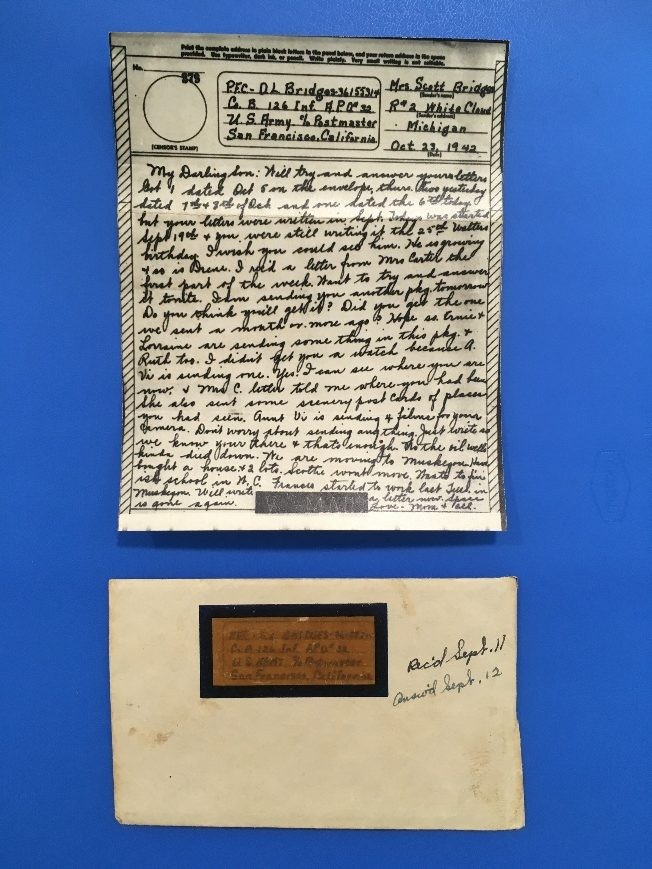 Print the complete address in plain block letters in the panel below, and your return address in the space
provided. Use typewriter, dark ink, or pencil. Write plainly. Very small writing is not suitable.
No.
379
(CENSOR'S STAMP)
PFC- D L Bridges-36155314
Co. B 126 Inf A.P.O# 32
U.S. Army % Postmaster
San Francisco, California
Mrs Scott Bridges
(Sender's name)
R#2 White Cloud
(Sender's address)
Michigan
Oct 23, 1942
(Date)
My Darling Son: Will try and answer yours letters
Got 1 dated Oct 5 on the envelope, thurs. two yesterday
dated 7th & 8th of Oct and one dated the 6th today.
but your letters were written in Sept. Todays was started
Sept 19th & you were still writing it the 25th Walters
birthday. I wish you could see him. He is growing
& so is Irene. I had a letter from Mrs Carter the
first part of the week. Want to try and answer
it tonite. I am sending you another pkg. tomorrow
Do you think you'll get it? Did you get the one
we sent a month or more ago? Hope so &
Lorraine are sending some thing in this pkg. &
Ruth too. I didn't get you a watch because A.
Vi is sending one. Yes, I can see where you are
now. & Mrs C. letter told me where you had been
She also sent some scenery post cards of places
you had seen. Aunt Vi is sending 4 films for your
Camera. Don't worry about sending any thing. Just write so
we know your there & thats enough. No the oil wells
kinda died down. We are moving to Muskegon. Have
bought a house & 2 lots. Scottie wont move. Wants to fin
ish school in W. C. Frances started to work last Tues. in
Muskegon. Will write a letter now. Space
is gone again. Love - Mom & Dad.
BRIDGES-36
Co. B 126 Inf A.P.O# 32
U.S. Army % Postmaster
San Francisco, California
Rec'd Sept. 11
Answ'd Sept. 12